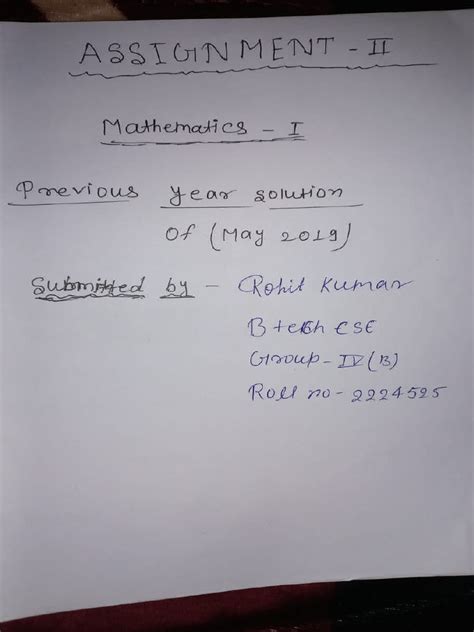 ASSIGNMENT - II
Mathematics - I
Previous Year Solution
Of (May 2019)
Submitted by - Rohit Kumar
B tech CSE
Group - IV (B)
Roll no - 2224525